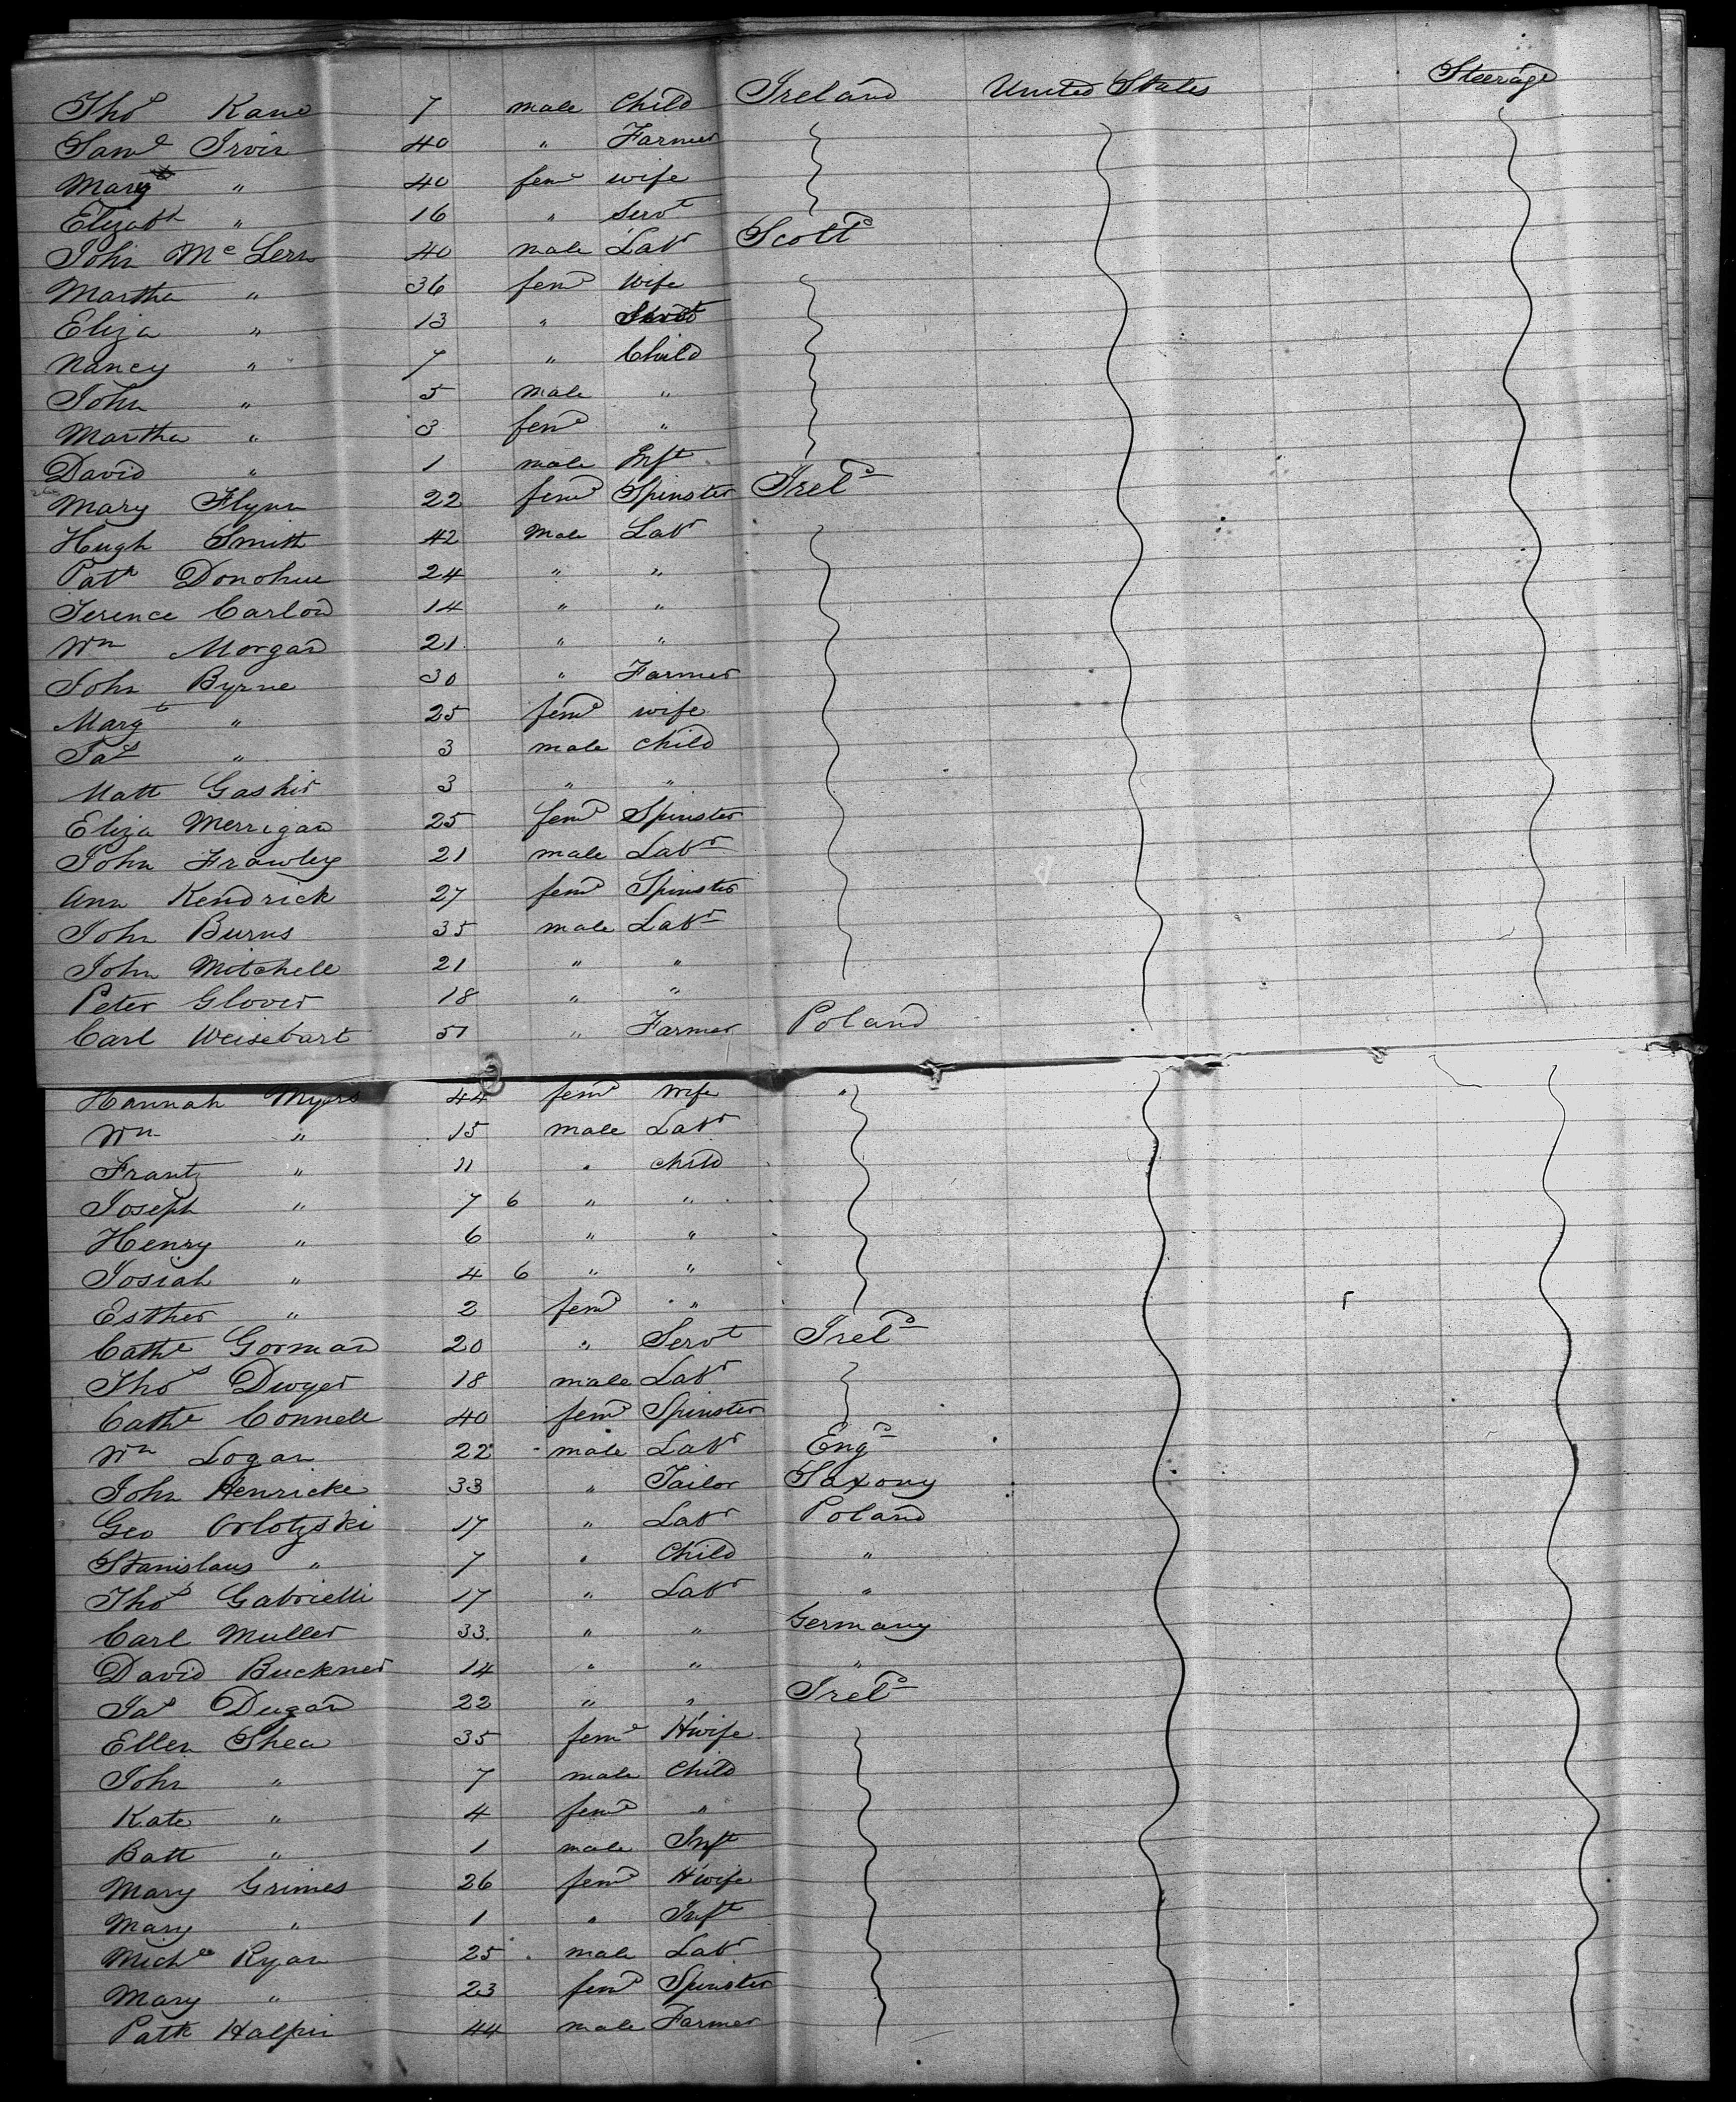 Thos Kane 7 male Child Ireland United States Steerage
Saml Irvin 40 " Farmer
Mary " 40 feme wife
Elizabth " 16 " Servt
John McLern 40 male Labr Scotld
Martha " 36 feme Wife
Eliza " 13 " Servt
Nancy " 7 " Child
John " 5 male "
Martha " 3 feme "
David " 1 male Inft
Mary Flynn 22 feme Spinster Ireld
Hugh Smith 42 Male Labr
Patk Donohue 24 " "
Terence Carlon 14 " "
Wm Morgan 21 " "
John Byrne 30 " Farmer
Margt " 25 feme wife
Jas " 3 male child
Matt 3 " "
Eliza Merrigan 25 feme Spinster
John Frawley 21 male Labr
Ann Kendrick 27 feme Spinster
John Burns 35 male Labr
John Mitchell 21 " "
Peter Glover 18 " "
Carl Weisebart 51 " Farmer Poland
Hannah Myers 44 feme Wife "
Wm " 15 male Labr
Frantz " 11 " child
Joseph " 7 6 " "
Henry " 6 " "
Josiah " 4 6 " "
Esther " 2 feme "
Cathe Gorman 20 " Servt Ireld
Thos Dwyer 18 male Labr
Cathe Connell 40 feme Spinster
Wm Logan 22 male Labr Engd
John Henricke 33 " Tailor Saxony
Geo Orlotzski 17 " Labr Poland
Stanislaus " 7 " Child "
Thos Gabrielli 17 " Labr "
Carl Muller 33 " " Germany
David Buckner 14 " " "
Jas Dugan 22 " " Ireld
Ellen Shea 35 feme H'wife
John " 7 male Child
Kate " 4 feme "
Batt " 1 male Inft
Mary Grimes 26 feme H'wife
Mary " 1 " Inft
Michl Ryan 25 male Labr
Mary " 23 feme Spinster
Patk Halpin 44 male Farmer